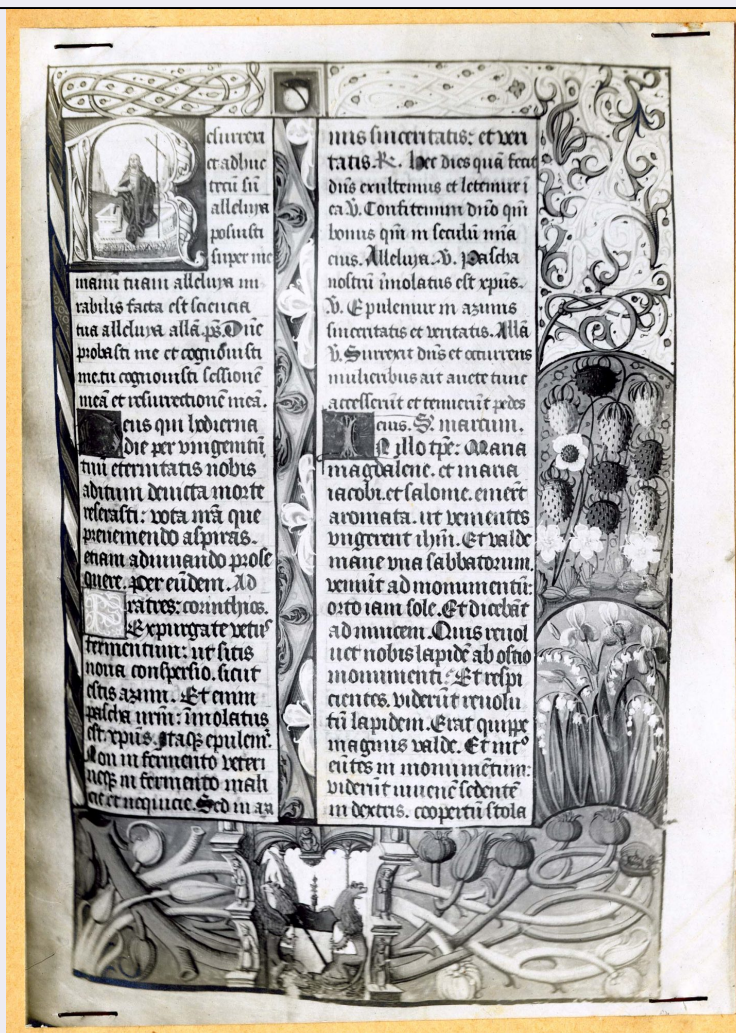 Resurrexi
et adhuc
tecū sū
alleluya
posuisti
super me
manū tuam alleluya mi
rabilis facta est sciencia
tua alleluya allā. p̄s. Dn̄e
probasti me et cognouisti
me. tu cognouisti sessionē
meā et resurrectionē meā.
Deus qui hodierna
die per vnigenitū
tuū eternitatis nobis
aditum deuicta morte
reserasti: vota n̄rā que
preueniendo aspiras.
etiam adiuuando prose
quere. Per eūdem. Ad
Fratres: corinthios.
Expurgate vetus
fermentum: ut sitis
noua conspersio. sicut
estis azimi. Et enim
pascha nr̄m: īmolatus
est. xp̄us. Itaq̨ epulem̄.
Non in fermento veteri
neq̨ in fermento mali
cie et nequicie. Sed in azi
mis sinceritatis: et veri
tatis. R. Hec dies quā fecit
dn̄s exultemus et letemur ī
ea. v̄. Confitemini dn̄o qm̄
bonus qm̄ in seculū mīa
eius. Alleluya. v̄. Pascha
nostrū īmolatus est xp̄us.
v̄. Epulemur in azimis
sinceritatis et veritatis. Allā
v̄. Surrexit dn̄s et occurrens
mulieribus ait auete tunc
accesserūt et tenuerūt pedes
eius. S. marcum.
In illo tp̄e: Maria
magdalene. et maria
iacobi. et salome. emerūt
aromata. ut venientes
vngerent ih̄m. Et valde
mane vna sabbatorum.
veniūt ad monumentū:
orto iam sole. Et dicebāt
ad inuicem. Quis reuol
uet nobis lapidē ab ostio
monumenti: Et respi
cientes. viderūt reuolu
tū lapidem. Erat quippe
magnus valde. Et int°
eūtes in monumētum:
viderūt iuuenē sedentē
in dextris. coopertū stola